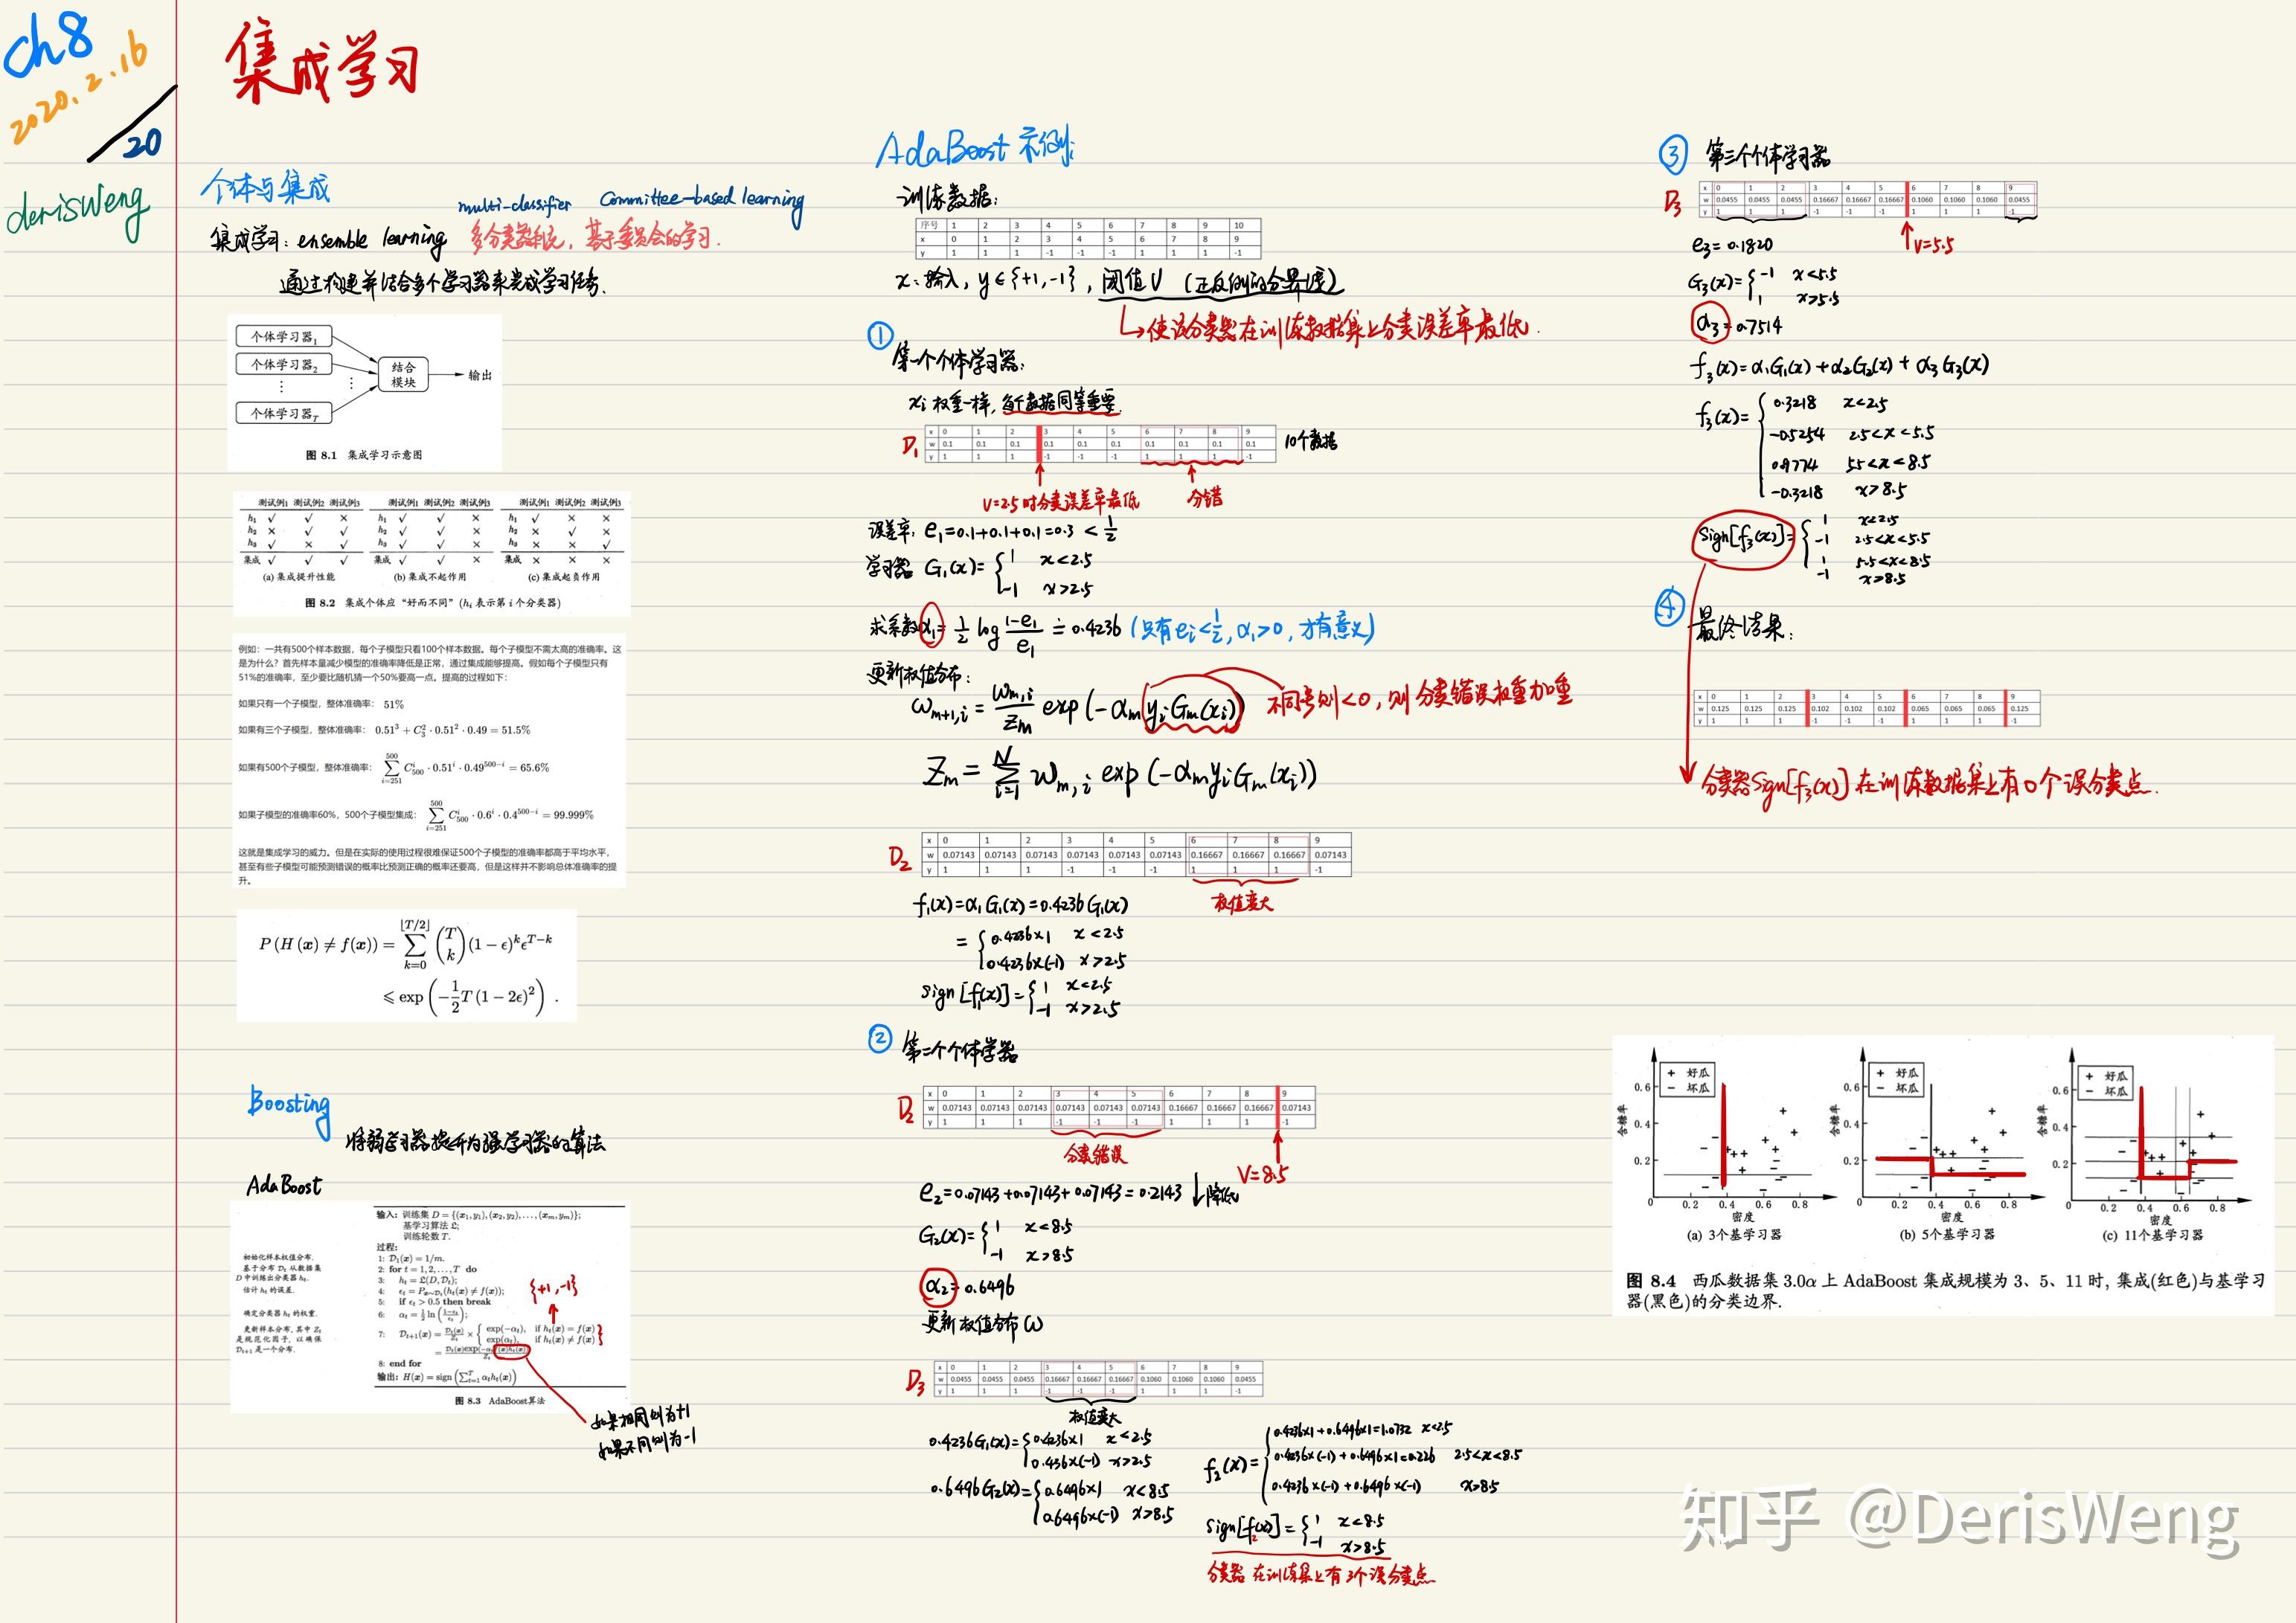 ch8
2020.2.16
/20
derisweng
集成学习
个体与集成
multi-classifier Committee-based learning
集成学习: ensemble learning 多分类器系统, 基于委员会的学习.
通过构建并结合多个学习器来完成学习任务.
个体学习器1
个体学习器2
⋮ ⋮
个体学习器T
结合
模块
输出
图 8.1 集成学习示意图
测试例1 测试例2 测试例3 测试例1 测试例2 测试例3 测试例1 测试例2 测试例3
h1 √ √ × h1 √ √ × h1 √ × ×
h2 × √ √ h2 √ √ × h2 × √ ×
h3 √ × √ h3 √ √ × h3 × × √
集成 √ √ √ 集成 √ √ × 集成 × × ×
(a) 集成提升性能 (b) 集成不起作用 (c) 集成起负作用
图 8.2 集成个体应“好而不同”(hi 表示第 i 个分类器)
例如：一共有500个样本数据，每个子模型只看100个样本数据。每个子模型不需太高的准确率。这
是为什么？首先样本量减少模型的准确率降低是正常，通过集成能够提高。假如每个子模型只有
51%的准确率，至少要比随机猜一个50%要高一点。提高的过程如下：
如果只有一个子模型，整体准确率： 51%
如果有三个子模型，整体准确率： 0.51³ + C₃² · 0.51² · 0.49 = 51.5%
如果有500个子模型，整体准确率： ∑_{i=251}^{500} C_{500}^i · 0.51^i · 0.49^{500−i} = 65.6%
如果子模型的准确率60%，500个子模型集成： ∑_{i=251}^{500} C_{500}^i · 0.6^i · 0.4^{500−i} = 99.999%
这就是集成学习的威力。但是在实际的使用过程很难保证500个子模型的准确率都高于平均水平，
甚至有些子模型可能预测错误的概率比预测正确的概率还要高，但是这样并不影响总体准确率的提
升。
P(H(x) ≠ f(x)) = ∑_{k=0}^{⌊T/2⌋} (T k) (1 − ϵ)^k ϵ^{T−k}
⩽ exp(−1/2 T(1 − 2ϵ)²) .
Boosting
将弱学习器提升为强学习器的算法
AdaBoost
初始化样本权值分布.
基于分布 Dt 从数据集
D 中训练出分类器 ht.
估计 ht 的误差.
确定分类器 ht 的权重.
更新样本分布, 其中 Zt
是规范化因子, 以确保
Dt+1 是一个分布.
输入: 训练集 D = {(x1, y1), (x2, y2), ..., (xm, ym)};
基学习算法 𝔏;
训练轮数 T.
过程:
1: D1(x) = 1/m.
2: for t = 1, 2, ..., T do
3: ht = 𝔏(D, Dt);
4: ϵt = Px~Dt(ht(x) ≠ f(x));
5: if ϵt > 0.5 then break
6: αt = 1/2 ln((1−ϵt)/ϵt);
7: Dt+1(x) = Dt(x)/Zt × { exp(−αt), if ht(x) = f(x)
exp(αt), if ht(x) ≠ f(x) }
= Dt(x)exp(−αt f(x)ht(x))/Zt
8: end for
输出: H(x) = sign(∑_{t=1}^T αt ht(x))
图 8.3 AdaBoost算法
{+1, -1}
如果相同则为+1
如果不同则为-1
AdaBoost 示例:
训练数据:
序号 1 2 3 4 5 6 7 8 9 10
x 0 1 2 3 4 5 6 7 8 9
y 1 1 1 -1 -1 -1 1 1 1 -1
x: 输入, y∈{+1,-1}, 阈值V (正反例的分界线)
↳使该分类器在训练数据集上分类误差率最低.
①
第一个个体学习器:
xi 权重一样, 每个数据同等重要.
D1
x 0 1 2 3 4 5 6 7 8 9
w 0.1 0.1 0.1 0.1 0.1 0.1 0.1 0.1 0.1 0.1
y 1 1 1 -1 -1 -1 1 1 1 -1
10个数据
V=2.5时分类误差率最低 分错
误差率: e1=0.1+0.1+0.1=0.3 < 1/2
学习器 G1(x)= { 1 x<2.5
-1 x>2.5
求系数α1= 1/2 log (1-e1)/e1 ≐ 0.4236 (只有ei<1/2, α1>0, 才有意义)
更新权值分布:
ωm+1,i = ωm,i/Zm exp(-αm yiGm(xi)) 不同号则<0, 则分类错误权重加重
Zm = ∑_{i=1}^N ωm,i exp(-αmyiGm(xi))
D2
x 0 1 2 3 4 5 6 7 8 9
w 0.07143 0.07143 0.07143 0.07143 0.07143 0.07143 0.16667 0.16667 0.16667 0.07143
y 1 1 1 -1 -1 -1 1 1 1 -1
权值变大
f1(x)=α1G1(x)=0.4236G1(x)
= { 0.4236×1 x<2.5
0.4236×(-1) x>2.5
sign[f1(x)]= { 1 x<2.5
-1 x>2.5
②
第二个个体学器
D2
x 0 1 2 3 4 5 6 7 8 9
w 0.07143 0.07143 0.07143 0.07143 0.07143 0.07143 0.16667 0.16667 0.16667 0.07143
y 1 1 1 -1 -1 -1 1 1 1 -1
分类错误
V=8.5
e2=0.07143+0.07143+0.07143=0.2143 ↓降低
G2(x)= { 1 x<8.5
-1 x>8.5
α2=0.6496
更新权值分布ω
D3
x 0 1 2 3 4 5 6 7 8 9
w 0.0455 0.0455 0.0455 0.16667 0.16667 0.16667 0.1060 0.1060 0.1060 0.0455
y 1 1 1 -1 -1 -1 1 1 1 -1
权值变大
0.4236G1(x)= { 0.4236×1 x<2.5
0.436×(-1) x>2.5
0.6496G2(x)= { 0.6496×1 x<8.5
0.6496×(-1) x>8.5
f2(x)= { 0.4236×1+0.6496×1=1.0732 x<2.5
0.4236×(-1)+0.6496×1=0.226 2.5<x<8.5
0.4236×(-1)+0.6496×(-1) x>8.5
sign[f2(x)]= { 1 x<8.5
-1 x>8.5
分类器 在训练集上有3个误分类点
③
第三个个体学习器
D3
x 0 1 2 3 4 5 6 7 8 9
w 0.0455 0.0455 0.0455 0.16667 0.16667 0.16667 0.1060 0.1060 0.1060 0.0455
y 1 1 1 -1 -1 -1 1 1 1 -1
V=5.5
e3=0.1820
G3(x)= { -1 x<5.5
1 x>5.5
α3=0.7514
f3(x)=α1G1(x)+α2G2(x)+α3G3(x)
f3(x)= { 0.3218 x<2.5
-0.5254 2.5<x<5.5
0.9774 5.5<x<8.5
-0.3218 x>8.5
sign[f3(x)]= { 1 x<2.5
-1 2.5<x<5.5
1 5.5<x<8.5
-1 x>8.5
④
最终结果:
x 0 1 2 3 4 5 6 7 8 9
w 0.125 0.125 0.125 0.102 0.102 0.102 0.065 0.065 0.065 0.125
y 1 1 1 -1 -1 -1 1 1 1 -1
分类器sign[f3(x)]在训练数据集上有0个误分类点.
+ 好瓜
− 坏瓜
+ 好瓜
− 坏瓜
+ 好瓜
− 坏瓜
含糖率 0.6 0.4 0.2 0
含糖率 0.6 0.4 0.2 0
含糖率 0.6 0.4 0.2 0
0.2 0.4 0.6 0.8 0.2 0.4 0.6 0.8 0.2 0.4 0.6 0.8
密度 密度 密度
(a) 3个基学习器 (b) 5个基学习器 (c) 11个基学习器
图 8.4 西瓜数据集 3.0α 上 AdaBoost 集成规模为 3、5、11 时, 集成(红色)与基学习
器(黑色)的分类边界.
知乎 @DerisWeng